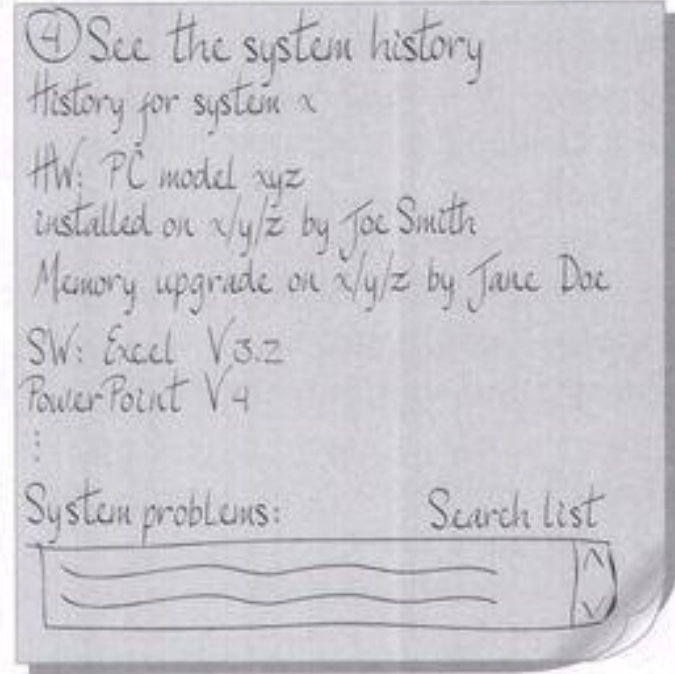 4 See the system history
History for system x
HW: PC model xyz
installed on x/y/z by Joe Smith
Memory upgrade on x/y/z by Jane Doe
SW: Excel V3.2
PowerPoint V4
System problems: Search list